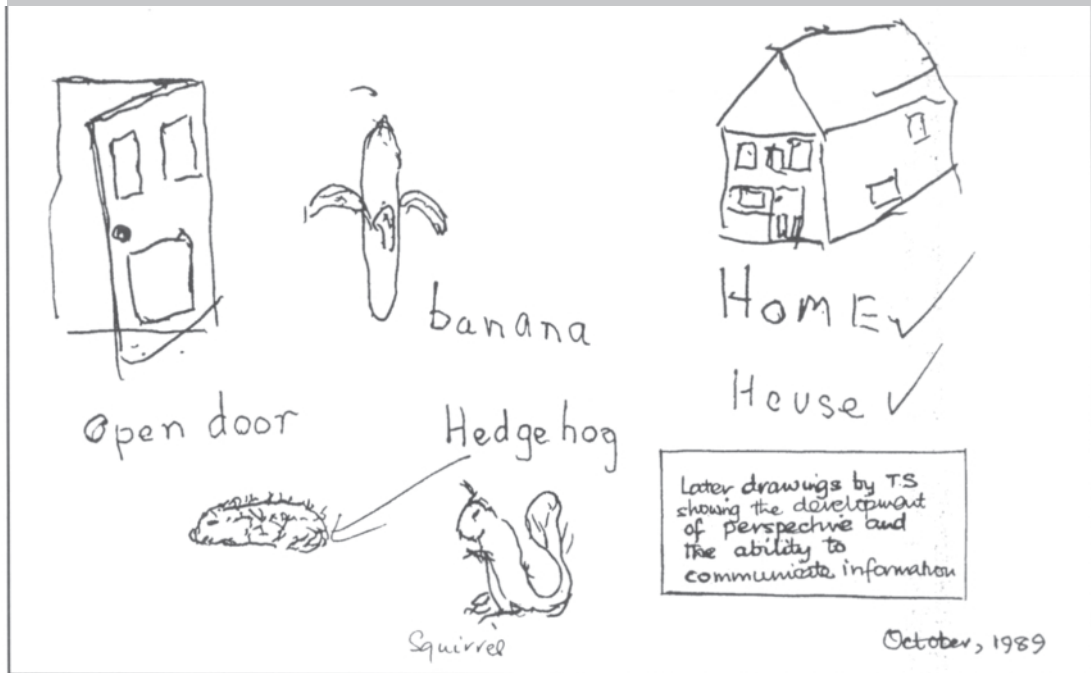 banana
HOME
House
open door
Hedgehog
Later drawings by T.S
showing the development
of perspective and
the ability to
communicate information
Squirrel
October, 1989